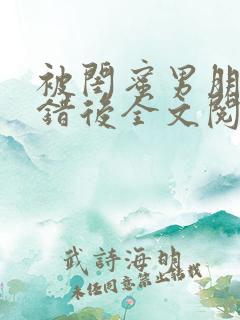 被閨蜜男朋
錯後全文閱
武詩海的
未经同意禁止转载